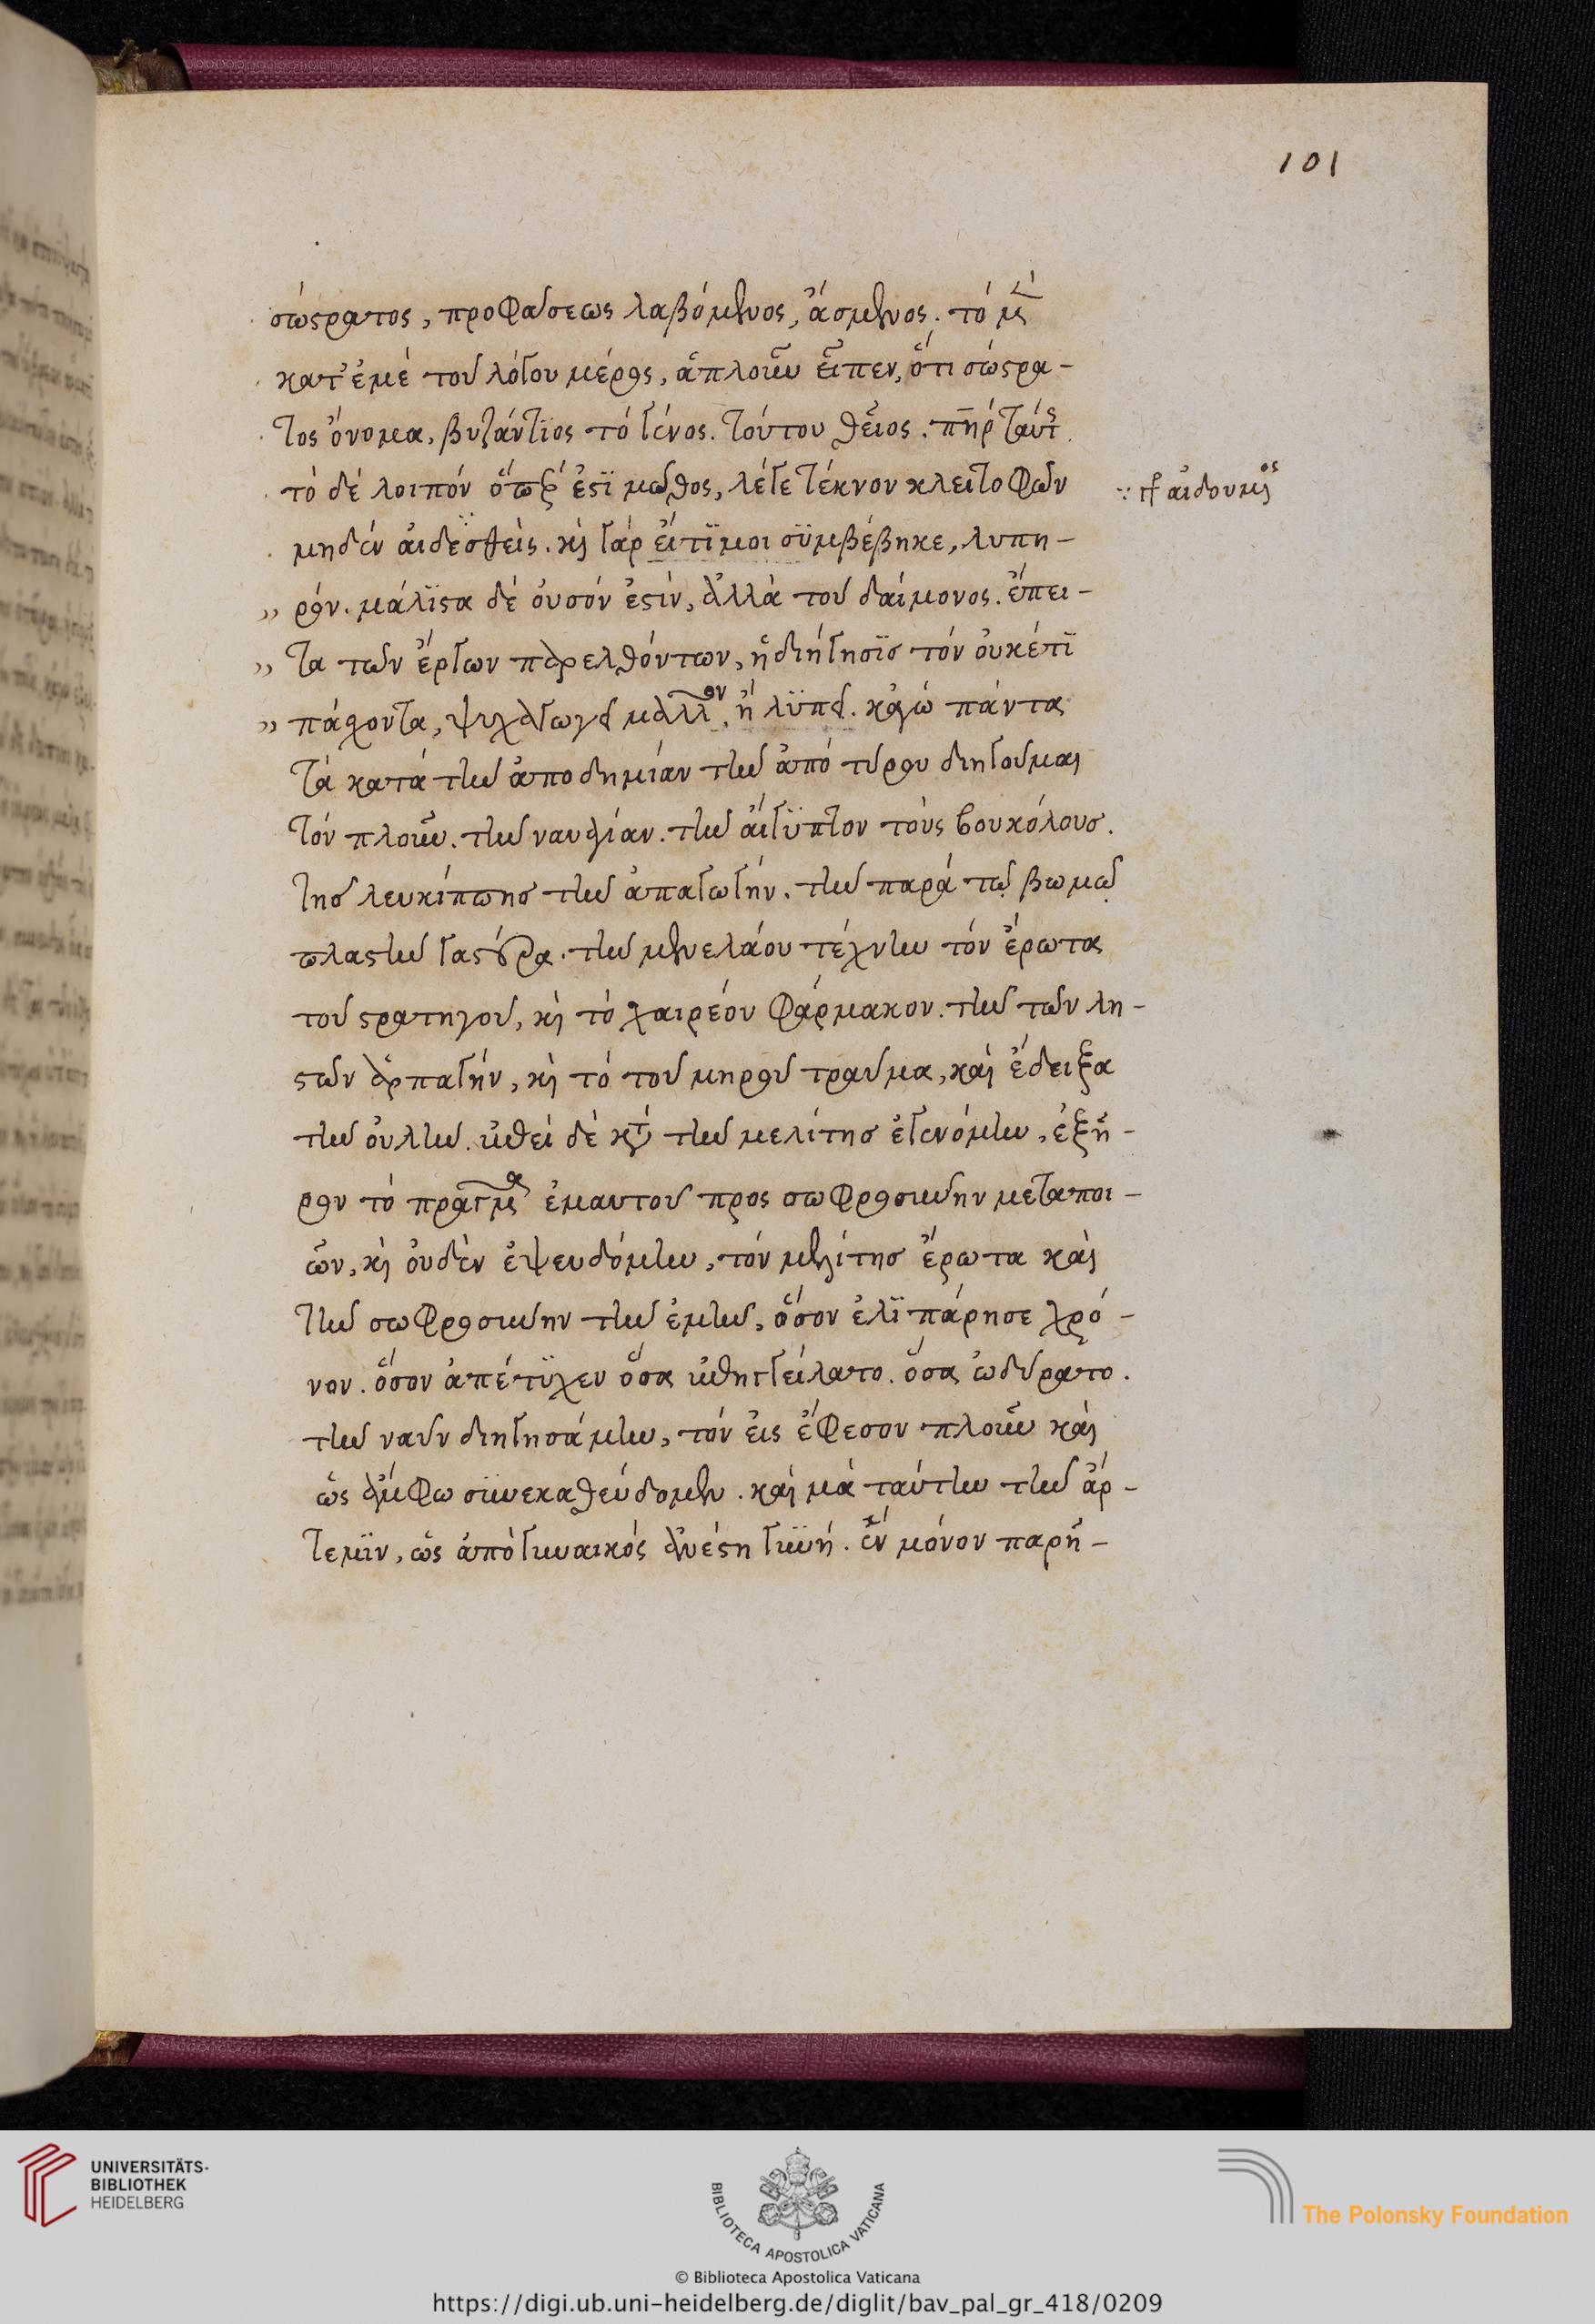 101
σώστρατος, προφάσεως λαβόμενος, ἄσμενος. τὸ μὲν
κατ' ἐμὲ τοῦ λόγου μέρος, ἁπλοῦν εἶπεν, ὅτι σώστρα-
τος ὄνομα, βυζάντιος τὸ γένος. τούτου θεῖος.
τὸ δὲ λοιπὸν ὅπερ ἐστὶ μῦθος, λέγε τέκνον κλειτοφῶν
μηδὲν αἰδεσθείς. καὶ γὰρ εἴ τι μοι συμβέβηκε, λυπη-
ρόν. μάλιστα δὲ οὐ σόν ἐστιν, ἀλλὰ τοῦ δαίμονος. ἔπει-
τα τῶν ἔργων παρελθόντων, ἡ διήγησις τὸν οὐκέτι
πάσχοντα, ψυχαγωγεῖ μᾶλλον, ἢ λυπεῖ. κἀγὼ πάντα
τὰ κατὰ τὴν ἀποδημίαν τὴν ἀπὸ τύρου διηγοῦμαι
τὸν πλοῦν. τὴν ναυαγίαν. τὴν αἴγυπτον τοὺς βουκόλους.
τῆς λευκίππης τὴν ἀπαγωγήν. τὴν παρὰ τῷ βωμῷ
πλαστὴν γαστέρα. τὴν μενελάου τέχνην τὸν ἔρωτα
τοῦ στρατηγοῦ, καὶ τὸ χαιρέου φάρμακον. τὴν τῶν λη-
στῶν ἁρπαγήν, καὶ τὸ τοῦ μηροῦ τραῦμα, καὶ ἔδειξα
τὴν οὐλήν. ἐπεὶ δὲ κατὰ τὴν μελίτης ἐγενόμην, ἐξῆ-
ρον τὸ πρᾶγμα ἐμαυτοῦ πρὸς σωφροσύνην μεταποι-
ῶν, καὶ οὐδὲν ἐψευδόμην, τὸν μελίτης ἔρωτα καὶ
τὴν σωφροσύνην τὴν ἐμήν, ὅσον ἐλιπάρησε χρό-
νον. ὅσον ἀπέτυχεν ὅσα ἐπηγγείλατο. ὅσα ὠδύρατο.
τὴν ναῦν διηγησάμην, τὸν εἰς ἔφεσον πλοῦν καὶ
ὡς ἄμφω συνεκαθεύδομεν. καὶ μὰ ταύτην τὴν ἄρ-
τεμιν, ὡς ἀπὸ γυναικὸς ἀνέστη γυνή. ἓν μόνον παρῆ-
UNIVERSITÄTS-
BIBLIOTHEK
HEIDELBERG
BIBLIOTECA APOSTOLICA VATICANA
The Polonsky Foundation
© Biblioteca Apostolica Vaticana
https://digi.ub.uni-heidelberg.de/diglit/bav_pal_gr_418/0209